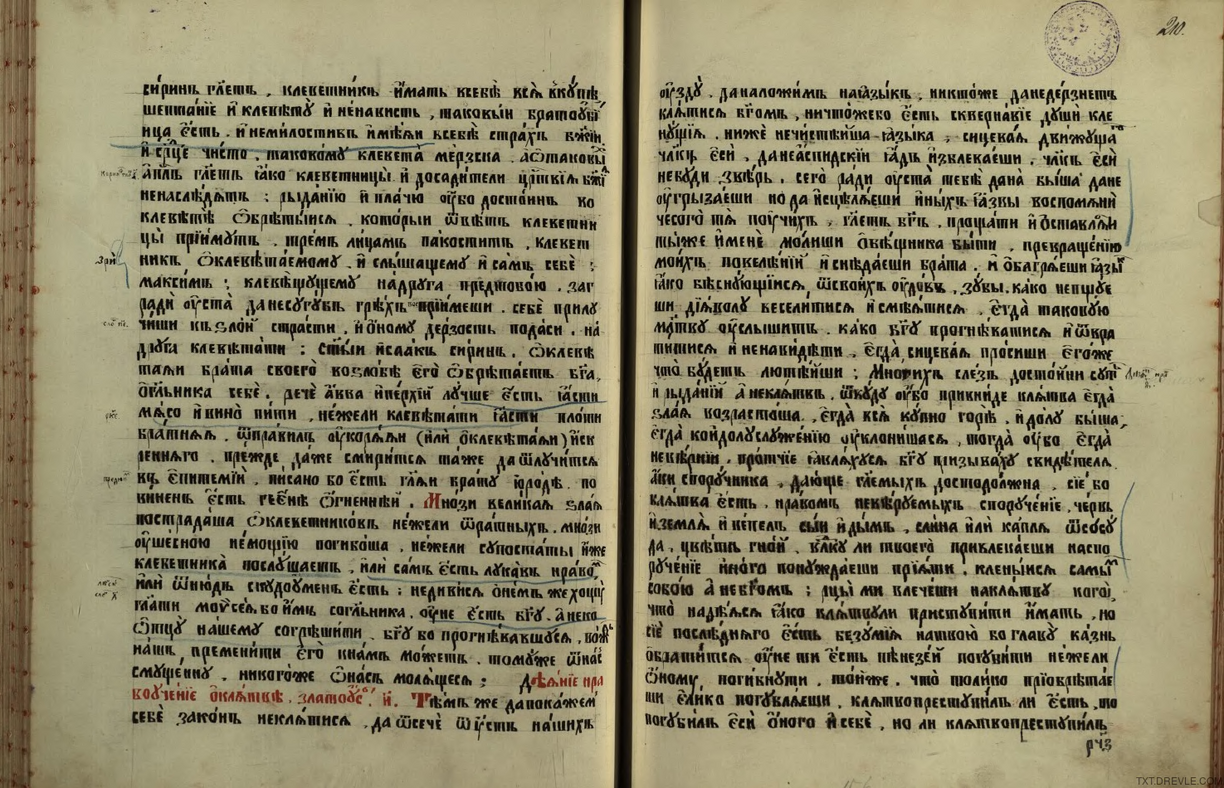 сиринъ гл҃етъ , клеветникъ имать въсебѣ всѧ вкупѣ
шептанїе и клеветꙋ и ненависть , таковыи братоꙋбі
ица есть . и немилостивъ имѣѧи всебѣ страхъ бж҃іи
и ср҃це чисто , таковомꙋ клевета мерзска . аѿтаковы
ап҃лъ гл҃етъ ꙗко клеветницы и досадители цр҃твїѧ бж҃і
ненаслѣдѧтъ ; рыданїю и плачю ᲂубо достоинъ ко
клеветѣ ѡбрѣтыисѧ , которыи ѿвѣтъ клеветни
цы прїимꙋтъ . тремъ лицамъ пакоститъ , клевет
никъ , ѡклеветаемомꙋ , и слышащемꙋ и самъ себе ;
Зри
максимъ ; клевещꙋщемꙋ надрꙋга предтобою , заг
ради ᲂуста данесꙋгꙋбъ грѣхъ прїимеши . себе прилꙋ
чиши къ ѕлои страсти , и ономꙋ дерзость подаси . на
дрꙋга клеветати ; ст҃ыи исаакъ сиринъ . ѡклеве
таѧи брата своего возлобѣ его ѡбрѣтаетъ бг҃а ,
ᲂгльника себе . рече авва иперхїи лꙋчше есть ꙗсти
мѧсо и вино пити , нежели клеветати ꙗсти плоти
братнѧѧ . ѿправилъ ᲂукорѧѧи (или ѡклеветаѧи) иск
реннѧго . прежде даже смиритсѧ таже да ѿлꙋчитсѧ
въ епитемїи , писано бо есть гл҃ѧи братꙋ юроде . по
виненъ есть геенѣ ѡгненнѣи . Мнози великаѧ ѕлаѧ
пострадаша ѡклеветниковъ нежели ѿратныхъ . мнози
ᲂушесною немощїю погибоша . нежели сꙋпостаты иже
клеветника послꙋшаетъ , или самъ есть лꙋкавъ нраво ,
или ѿнюдъ скꙋдоꙋменъ есть ; недивисѧ ѡнемъ же хощꙋ
гл҃ати моѵсеѧ бо имъ согльника , ᲂуне есть бг҃ꙋ . анеко
ѡтцꙋ нашемꙋ согрѣшити . бг҃ꙋ бо прогнѣвавшꙋсѧ , вож
нашъ , пременити его кнамъ можетъ . томꙋже ѿнас
смꙋщеннꙋ , никогоже ѡнасъ молѧщесѧ ; Дѣѧнїе нра
воꙋченїе оклѧтвѣ . златоꙋс . и҃ . Тѣмъ же да покажем
себе законъ неклѧтисѧ . да ѿсече ѿꙋстъ нашихъ
210.
ᲂуздꙋ . даналожимъ наꙗзыкъ , никтоже данедерзнетъ
клѧтисѧ бг҃омъ , ничтожебо есть сквернавїе дꙋши кле
нꙋщїѧ . ниже нечистѣиша ꙗзыка , сицеваѧ движꙋща
члк҃ъ еси , данеаспидскїи ꙗдъ извлекаеши . члк҃ъ еси
небꙋди ѕвѣрь . сего ради ᲂуста тебѣ дана быша дане
ᲂугрызаеши но да исцѣлѧеши иныхъ ꙗзвы воспомѧни
чесого тѧ поꙋчихъ , гл҃етъ бг҃ъ . прощати и оставлѧти
тыже имене молиши ѡвѣщника быти , превращенїю
моихъ повеленїи и снѣдаеши брата . и ѡбагрѧеши ꙗзы
ꙗко бѣснꙋющїисѧ , ѿсвоихъ ᲂудовъ , зꙋбы . како непщꙋе
ши дїаволꙋ веселитисѧ и смѣѧтисѧ , егда таковꙋю
мл҃твꙋ ᲂуслышитъ . како бг҃ꙋ прогнѣватисѧ и ѿвра
титисѧ и ненавидѣти , егда сицеваѧ просиши егоже
что бꙋдетъ лютѣиши ; Многихъ слезъ достоини сꙋт
и рыданїи а неклѧтвъ . ѿкꙋдꙋ ᲂубо прикниде клѧтва егда
ѕлаѧ возрастоша . егда всѧ кꙋпно горѣ и долꙋ быша ,
егда койдолꙋслꙋженїю ᲂуклонишасѧ , тогда ᲂубо егда
невѣрнїи . протчїе ꙗклѧхꙋсѧ бг҃ꙋ призывахꙋ свидѣтелѧ
аки спорꙋчника , дающе гл҃емыхъ достодолжна , сїе бо
клѧтва есть , нравомъ невѣрꙋемыхъ спорꙋченїе , червь
и землѧ и пепелъ сыи и дымъ , слина или каплѧ ѿсосꙋ
да , цвѣтъ гнои . влк҃ꙋ ли твоего привлекаеши наспо
рꙋченїе иного понꙋждаеши прїѧти . кленыисѧ самъ
собою а небг҃омъ ; рцы ми влечеши наклѧтвꙋ кого
что надѣѧсѧ ꙗко клѧтвꙋли пристꙋпити имать , но
сїе послѣднѧго есть безꙋмїѧ натвою бо главꙋ казнь
ѡбратитсѧ ᲂуне ти есть пѣнезеи погꙋбити нежели
ѡномꙋ погибнꙋти . тойже . что толико прїѡбрѣтае
ти елико погꙋблѧеши , клѧтвопрестꙋпилъ ли есть , то
погꙋбилъ еси ѡного и себе , но ли клѧтвопрестꙋпилъ
рч҃з
TXT.DREVLE.COM